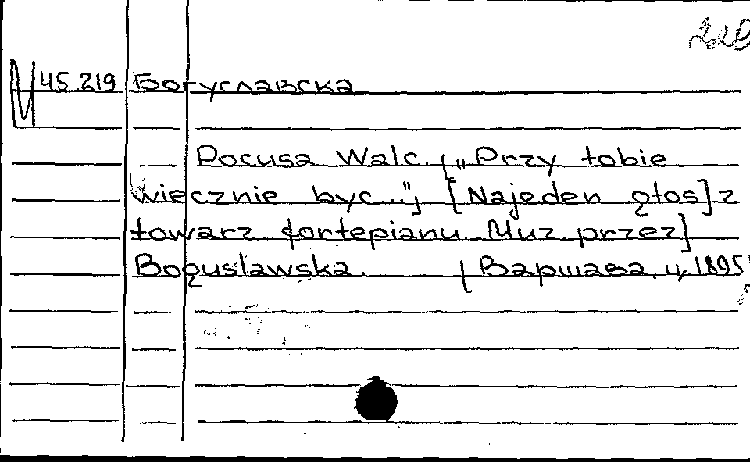 220
М 45.219 Богуславска
Pocusa Walc. („Przy tobie
wiecznie byc..."] [Najeden głos] z
towarz fortepianu. Muz przez]
Bogusławska. [Варшава. ц. 1895